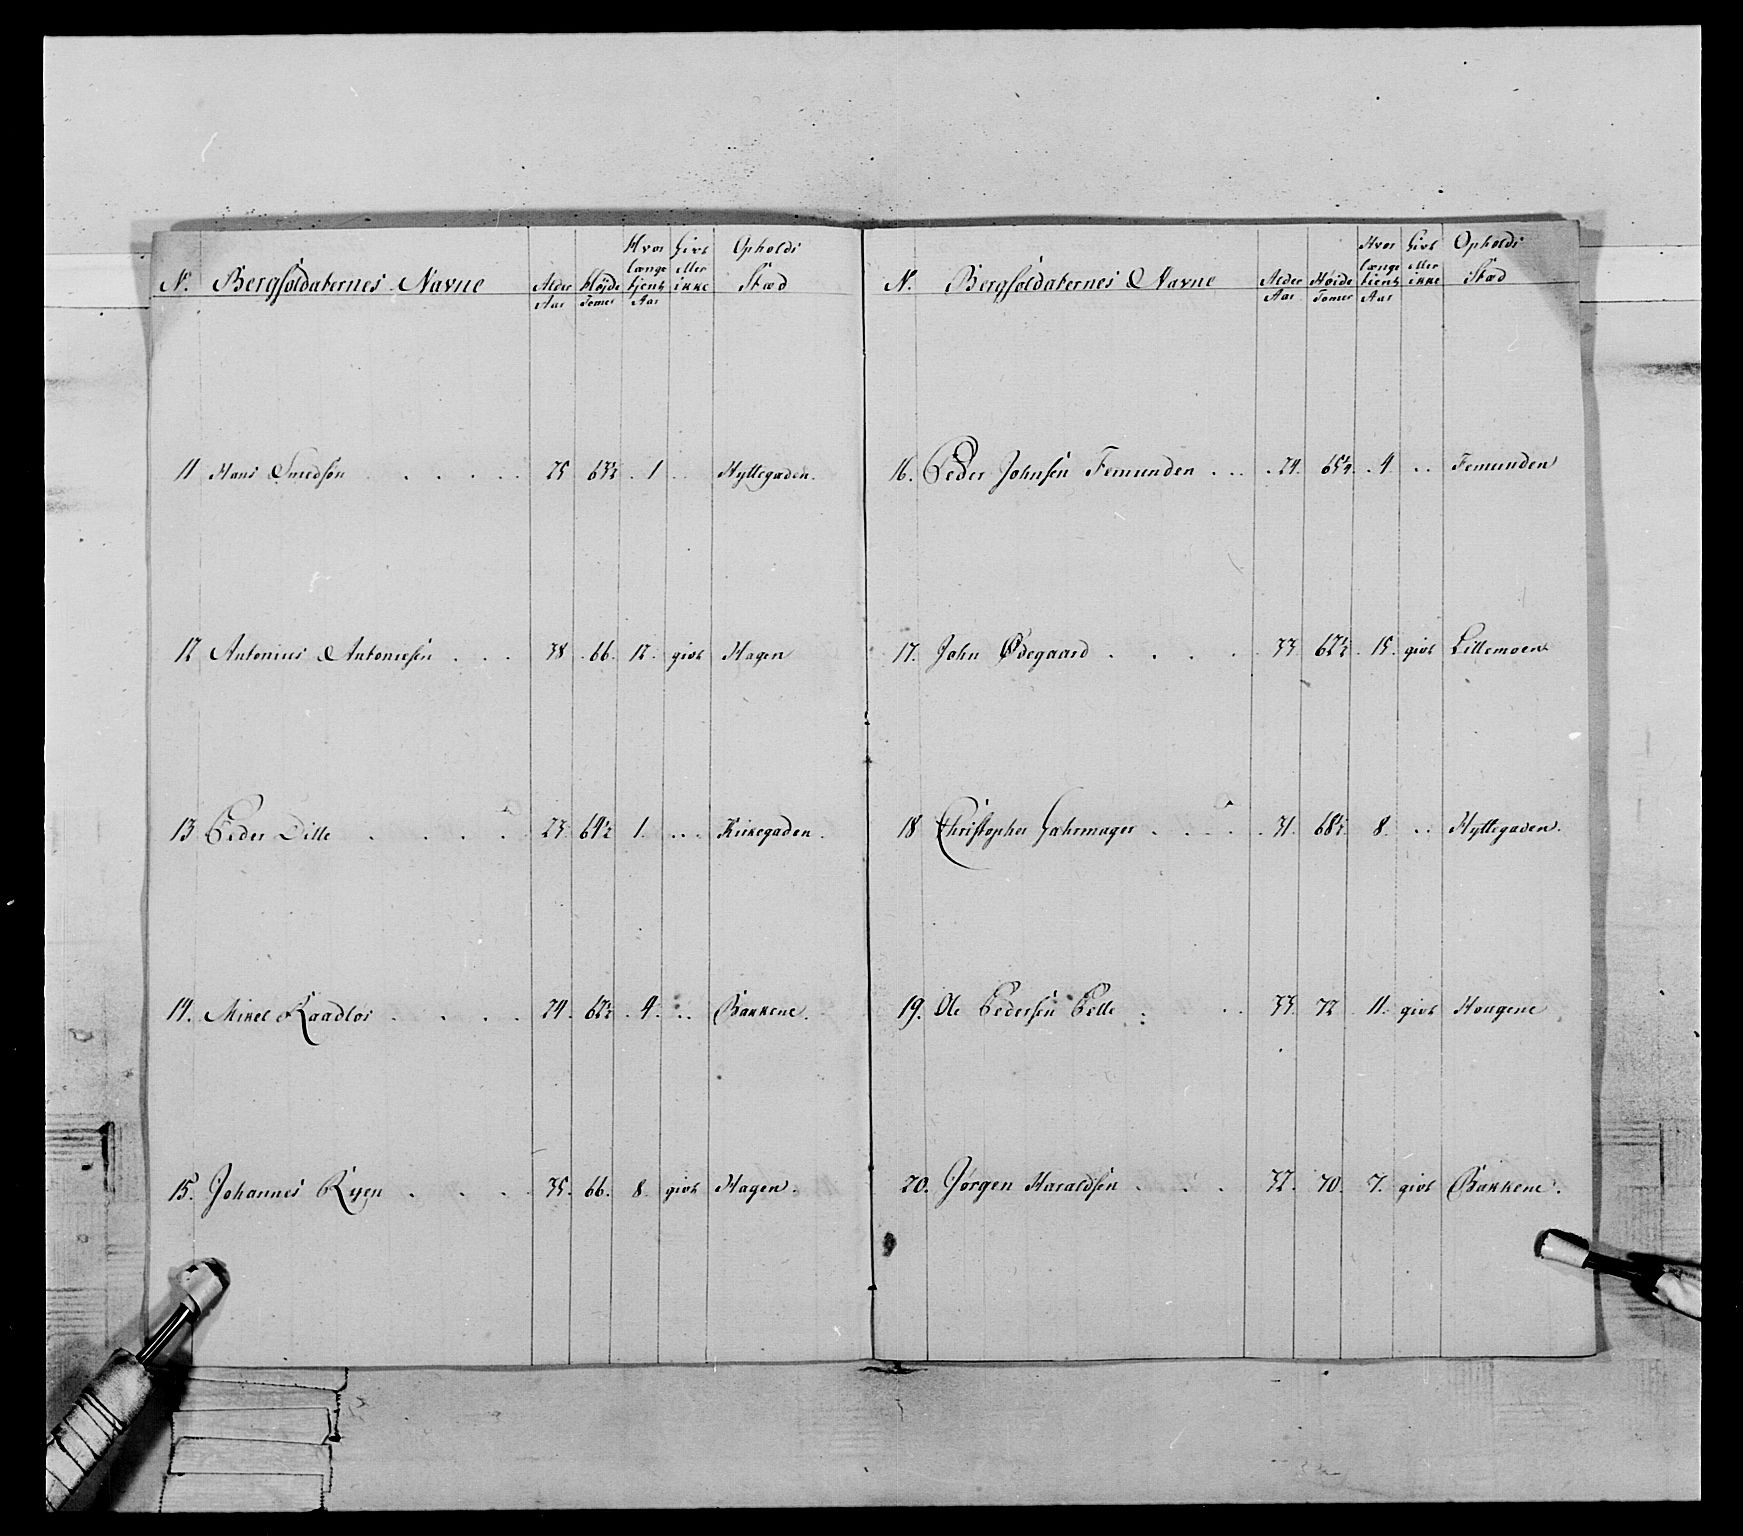 N. Bergsoldaternes Navne Alder Aar Höyde Tomer Hvor længe tjent Aar Givt eller ikke Opholds Stæd
11 Hans Smedsøn . . . . . 25 63½ . 1 . . Hyttegaden.
12 Antonius Antoniesen . . . 38 . 66. 12. givt Hagen
13 Peder Dille . . . . 23. 64½ 1. . . . Kirkegaden.
14. Mikel Raadlos . . . . 24. 62½ . 4. . . Bakkene.
15. Johannes Ryen . . . . 35. 66. 8. givt Hagen.
N. Bergsoldaternes Navne Alder Aar Höide Tomer Hvor længe tient Aar Givt eller ikke Opholds Stæd
16. Peder Johnsen Femunden . . . 24. 65¼ . 4. . . Femunden
17. John Ødegaard . . . . 33 62½ . 15. givt Lillemoen
18 Christopher Gahrmager . . . . 31. 68½ 8. . . Hyttegaden.
19. Ole Pedersen Pelle . . . 33. 72 11. givt Hougene
20. Jørgen Haraldsen . . . 32. 70. 7. givt Bakkene.